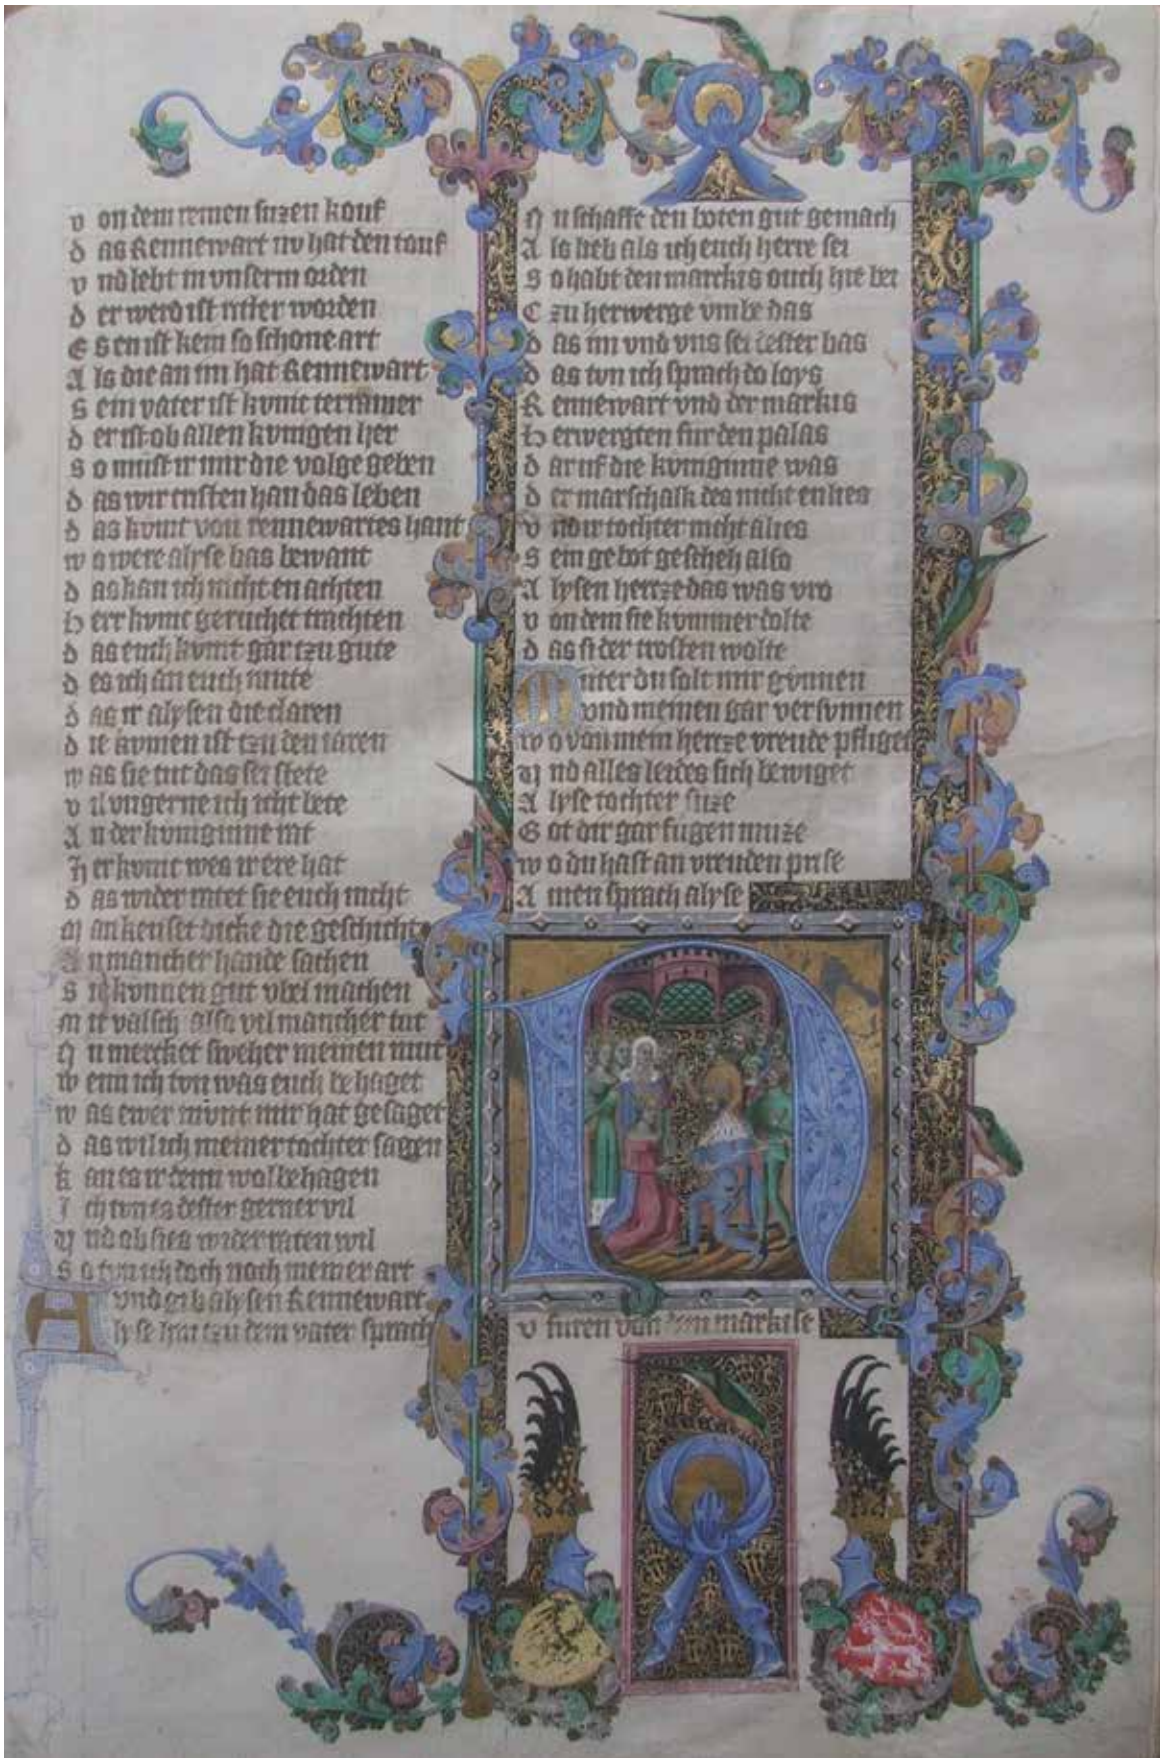 v on dem reinen suzen kouf
d as Rennewart nv hat den touf
v nd lebt in vnserm orden
d er werd ist ritter worden
E s en ist kein so schone art
A ls die an im hat Rennewart
S ein vater ist kvnic terramer
d er ist ob allen kvnigen her
S o must ir mir die volge geben
d as wir cristen han das leben
d as kvmt von rennewartes hant
w o were alyse bas bewant
d as kan ich nicht en achten
h err kvnic geruchet trachten
d as euch kvmt gar tzu gute
d es ich an euch mute
d as ir alysen die claren
d ie kvmen ist tzu den iaren
w as sie tut das sei stete
v il vngerne ich icht bete
A n der kvniginne rat
H er kvnic wes ir ere hat
d as wider ratet sie euch nicht
M an kenset dicke die geschicht
A n mancher hande sachen
S ie kvnnen gut vbel machen
M it valsch also vil mancher tut
N u mercket sweher meinen mut
w enn ich tvn was euch behaget
w as ewer mvnt mir hat gesaget
d as wil ich meiner tochter sagen
k an es ir denn wol behagen
I ch tvn es dester gerner vil
V nd ob sies wider raten wil
S o tvn ich doch noch meiner art
vnd gib alysen Rennewart
A lyse hat tzu dem vater sprach
N u schaffe den boten gut gemach
A ls lieb als ich euch herre sei
S o habt den marckis ouch hie bei
C zu herwerge vmbe das
d as im vnd vns sei dester bas
d as tvn ich sprach do loys
R ennewart vnd der markis
h erwergten fur den palas
d ar uf die kvniginne was
d er marschalk des nicht en lies
v nd ir tochter nicht alies
S ein gebot gescheh also
A lysen hertze das was vro
v on dem sie kvmmer dolte
d as si der trosten wolte
M uter du solt mir gvnnen
vnd meinen gar versvnnen
w o von mein hertze vreude pfliget
V nd alles leides sich bewiget
A lyse tochter suze
G ot dir gar fugen muze
w o du hast an vreuden prise
A men sprach alyse
N
v furen von dem markise